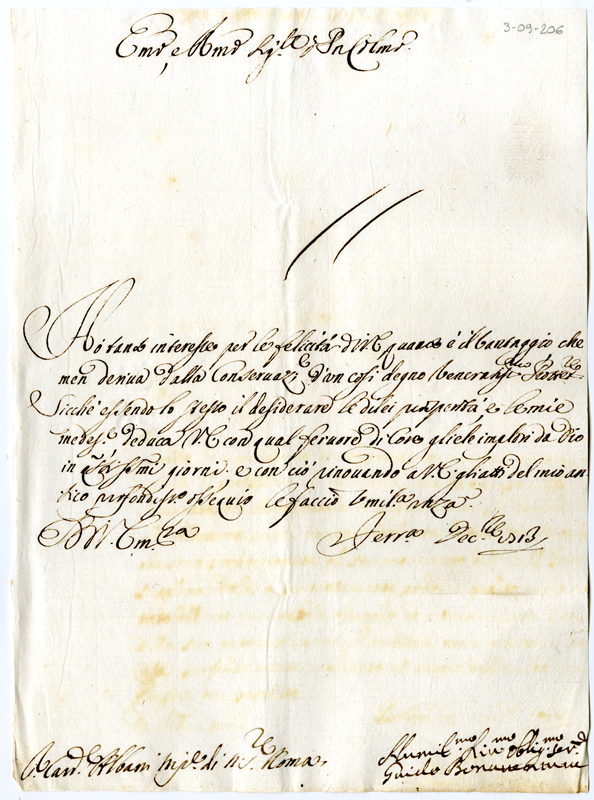 3-09-206
Em.o, e R.mo Sig.re e P.n Col.mo
Ho tanto interesse per le felicità di V.E. quanto è il Vantaggio che
men deriva dalla Conservaz.e d'un così degno veneratiss.mo Protet.re
Sicché essendo lo stesso il desiderare le di lei prosperità e le mie
medes.e deduca V.E. con qual fervore di Core gliele implori da Dio
in q.ti SS.mi giorni. e con ciò rinovando a V.E. gli atti del mio an-
tico profondiss.o ossequio le faccio umil.a riv.za.
Di V. Em.za Ferr.a Dec.bre 1713
S. Card.e Albani Nip.e di N. S.re Roma.
Humil.mo Div.mo Oblig.mo Ser.re
Guido Bonaventura